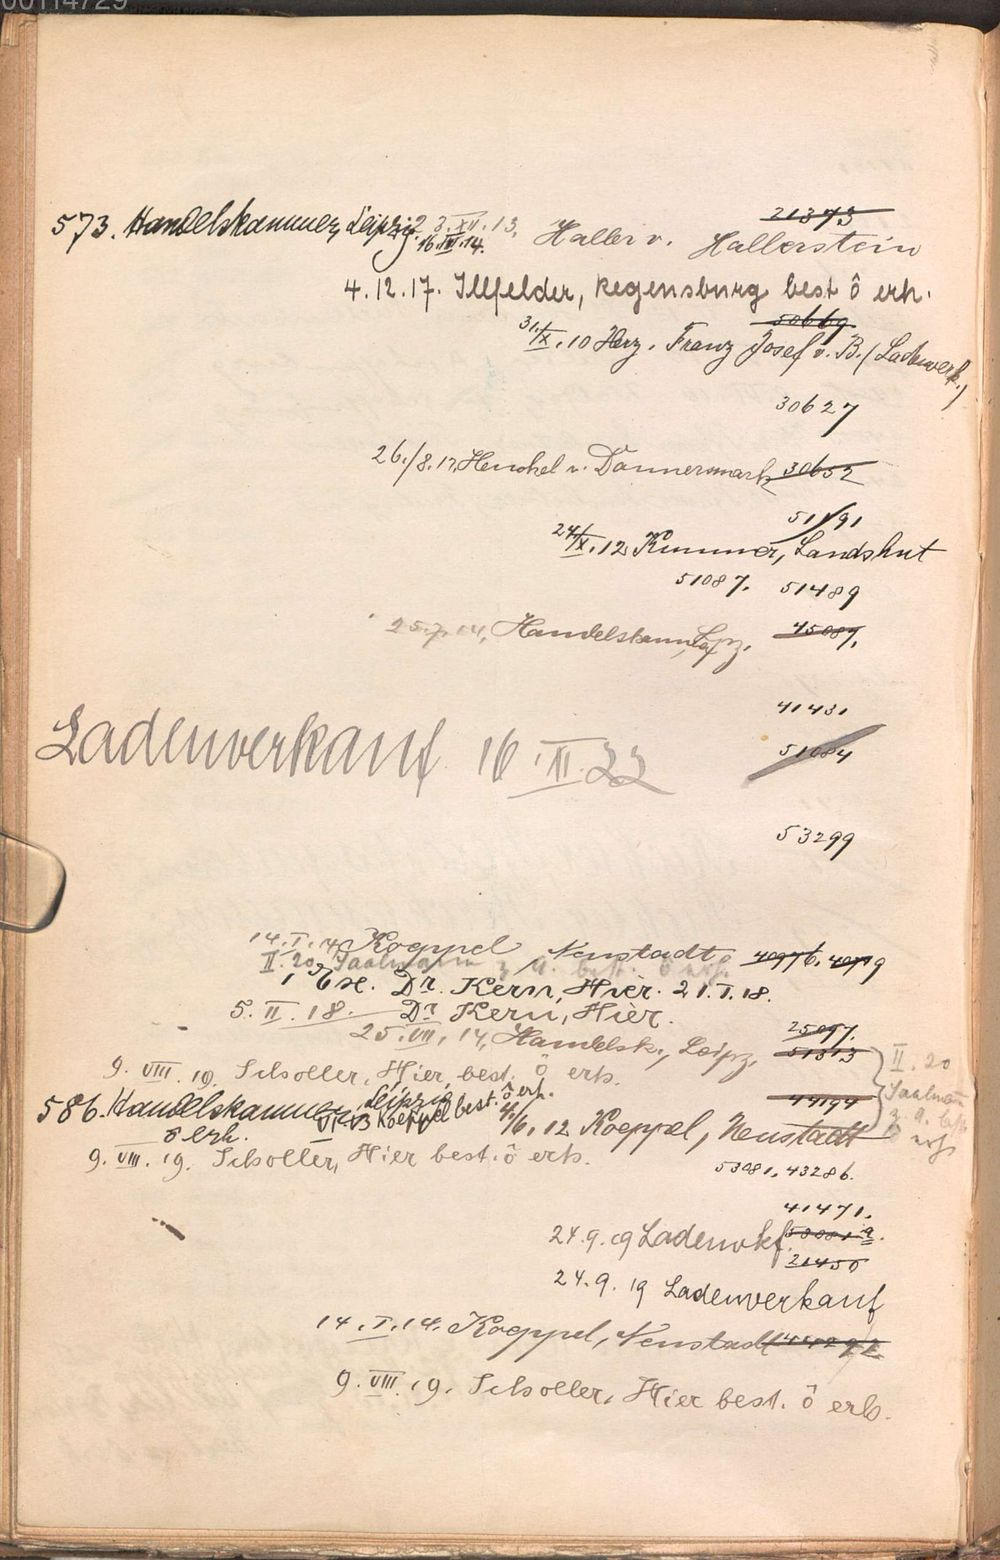 00114729
21373
573. Handelskammer, Leipzig. 3.XII.13. Haller v. Hallerstein
16.III.14.
4.12.17. Illfelder, Regensburg best ô erh.
50669.
31/X.10 Herz. Franz Josef v. B. (Ladenverk.)
30627
26./8.17. Henckel v. Donnersmark 30652
51191
24/X.12 Kummer, Landshut
51087. 51489
25.7.14, Handelskam. Lpz. 45087.
41431
Ladenverkauf 16.III.22
51684
53299
14.I.14 Koeppel, Neustadt 40976. 40979
II.20 Saalmann z. A. best. ô
1 Ex. Dr. Kern, Hier. 21.I.18.
5.II.18. Dr. Kern, Hier.
25097.
25.VII.14, Handelsk., Leipz. 51313
II.20
9.VIII.19. Scholler, Hier, best. ô erh.
Saalmann
586. Handelskammer, Leipzig best. ô erh.
44194
z. A. best
Koeppel
4/6.12 Koeppel, Neustadt
ô erh.
9.VIII.19. Scholler, Hier best. ô erh.
53081, 43286.
41471.
24.9.19 Ladenvkf. 53081a.
21450
24.9.19 Ladenverkauf
14.I.14. Koeppel, Neustadt
9.VIII.19. Scholler, Hier best. ô erh.